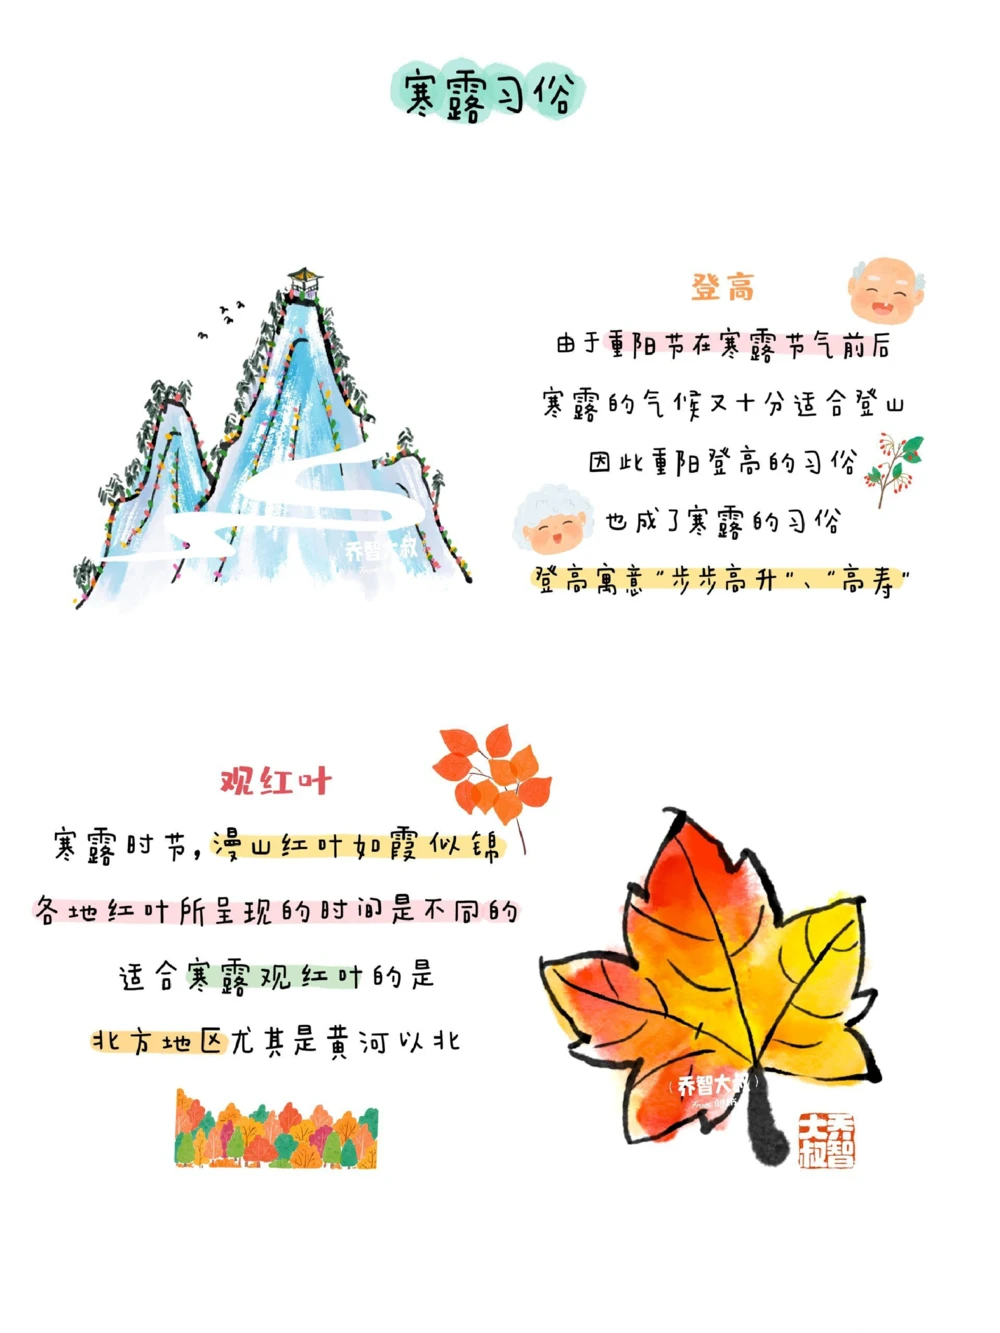 寒露习俗
登高
由于重阳节在寒露节气前后
寒露的气候又十分适合登山
因此重阳登高的习俗
也成了寒露的习俗
登高寓意"步步高升"、"高寿"
乔智大叔
观红叶
寒露时节,漫山红叶如霞似锦
各地红叶所呈现的时间是不同的
适合寒露观红叶的是
北方地区尤其是黄河以北
乔智大叔
乔智大叔